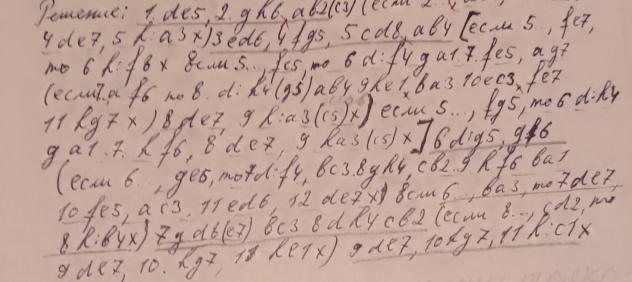 Решение: 1. de5, 2. gh6, ab2(c3) (если 2...
4 de7, 5 h:a3x) 3 ed6, 4 fg5, 5 cd8, ab4 [если 5.., fe7,
то 6 h:f8x Если 5.., fe5, то 6 d:f4 ga1. 7. fe5, ag7
(если 7. af6 то 8. d:h4(g5) ab4 9 he1, ba3 10 ec3, fe7
11 hg7x) 8 de7, 9 h:a3(c5)x) если 5.., fg5, то 6 d:h4
ga1. 7. hf6, 8 de7, 9 ha3(c5)x] 6 d:g5, gf6
(если 6.., ge5, то 7 d:f4, bc3. 8 gh4, cb2.. 9 hf6 ba1
10 fe5, ac3. 11 ed6, 12 de7x) Если 6.., ba3, то 7 de7,
8 h:b4x) 7 gd8(e7) bc3 8 dh4 cb2 (если 8.., cd2, то
9 de7, 10. hg7, 11 he1x) 9 de7, 10 hg7, 11 h:c1x